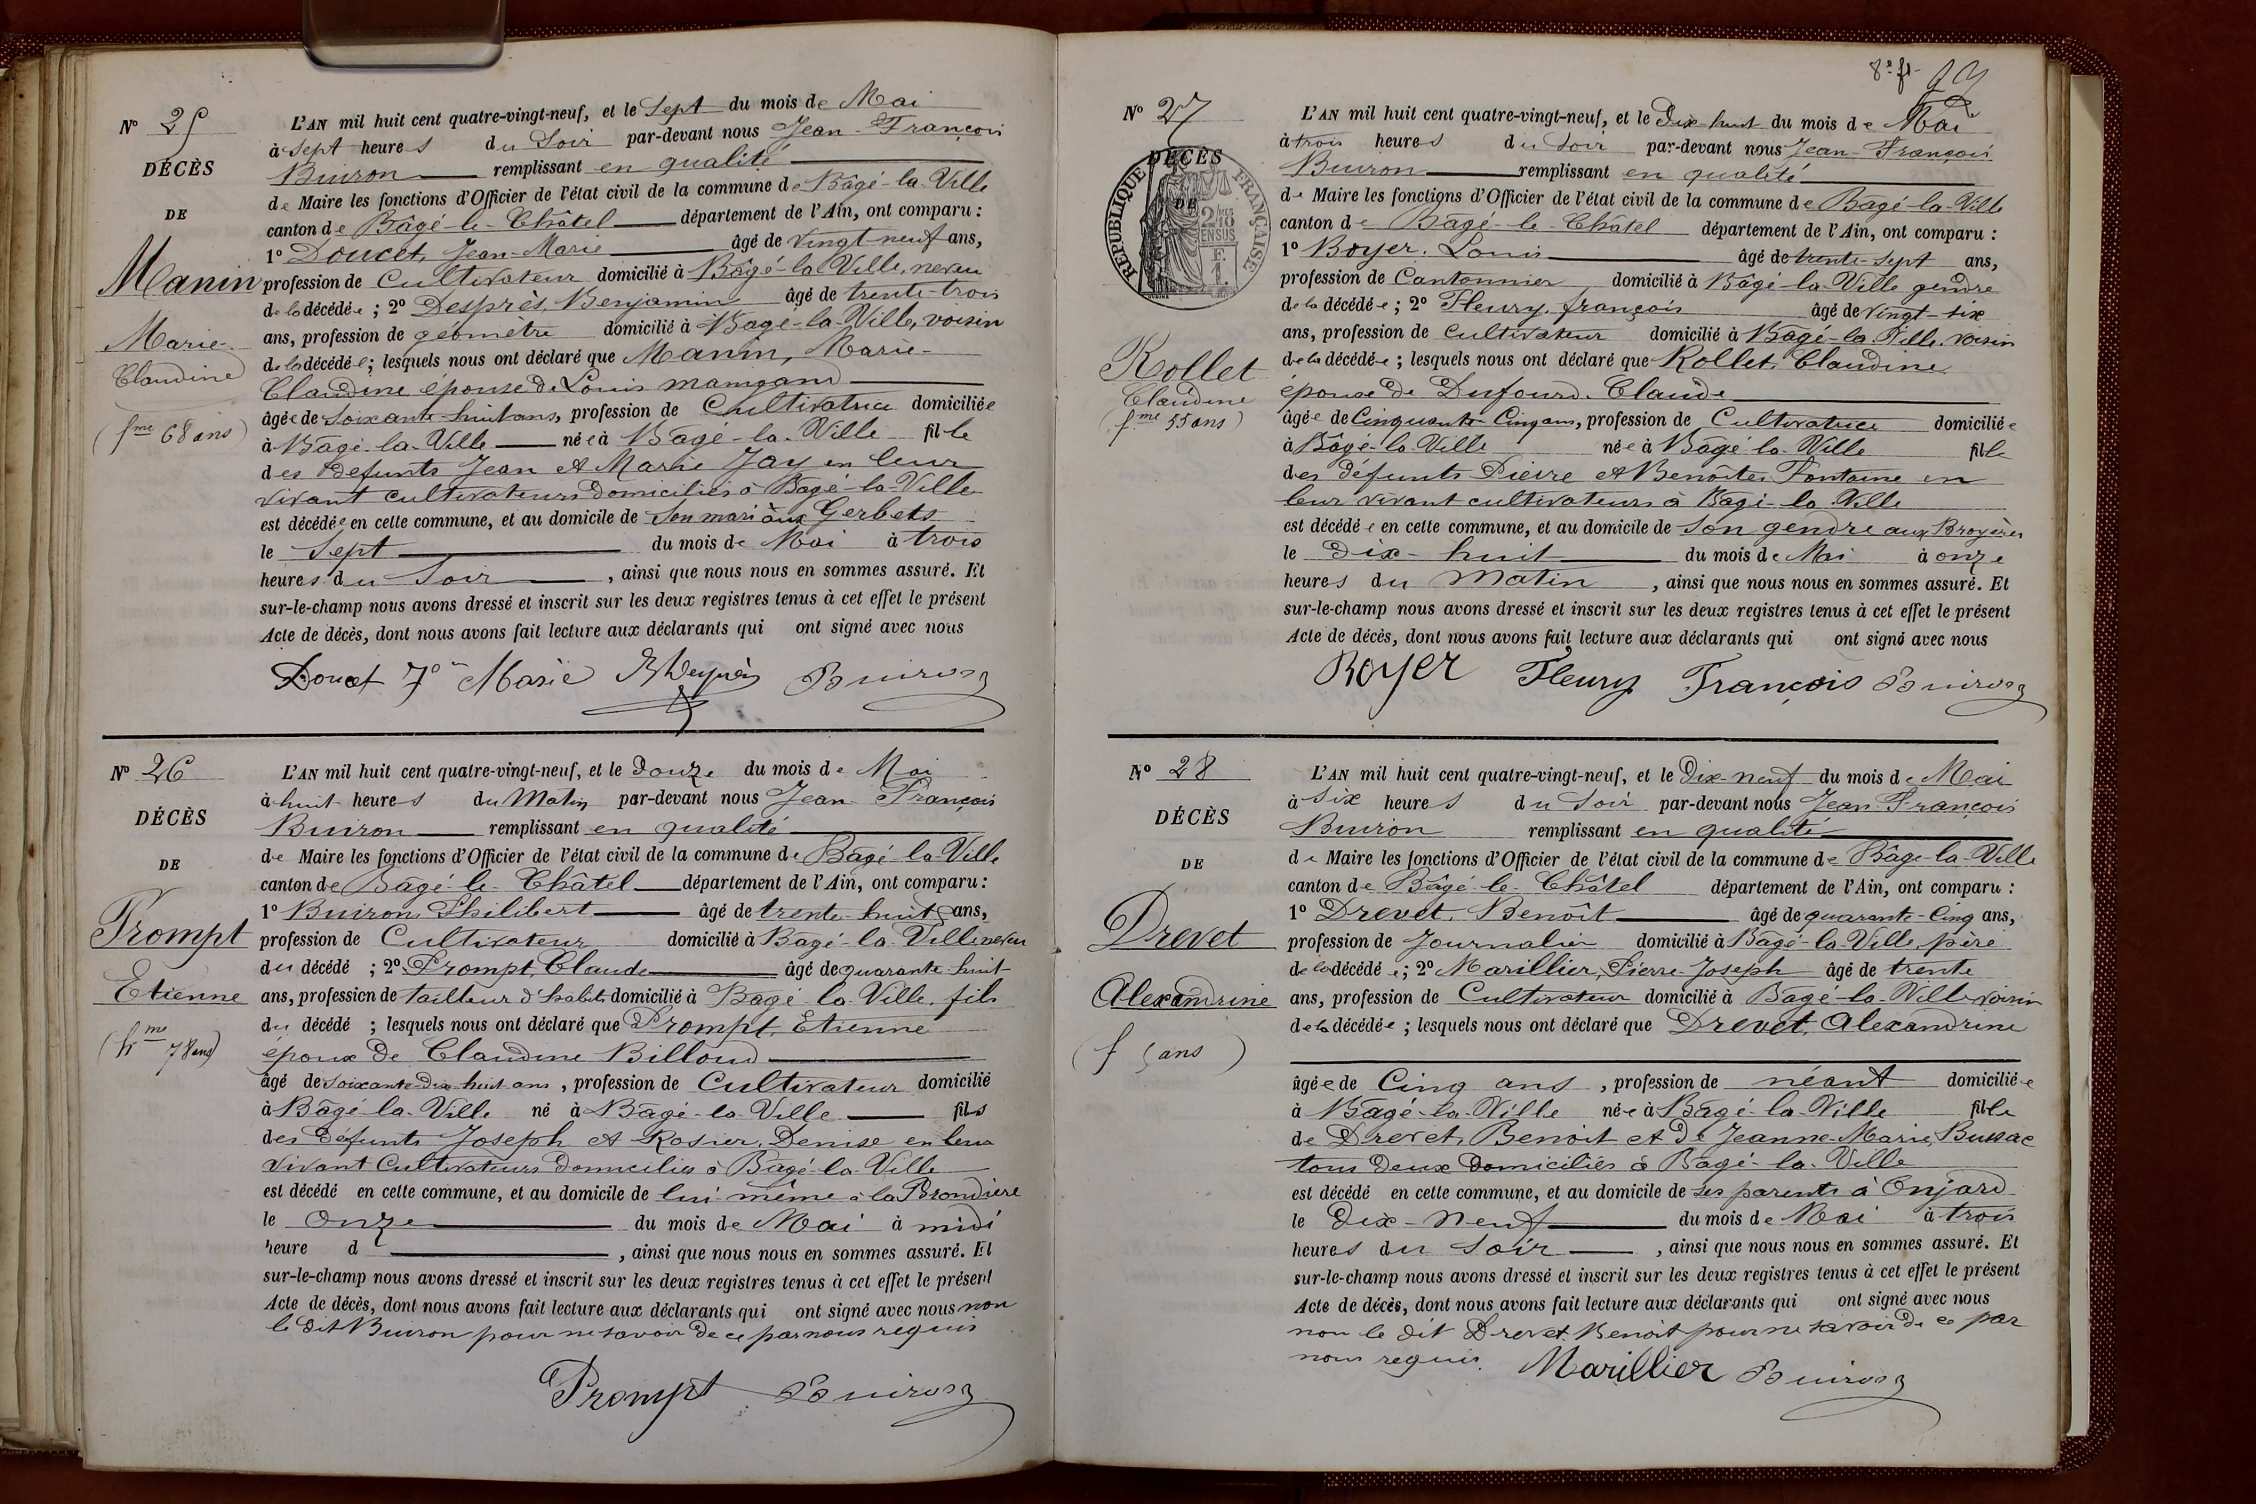 Nº 25
DÉCÈS
DE
Manin
Marie-
Claudine
(fme 68 ans)
L'AN mil huit cent quatre-vingt-neuf, et le Sept du mois de Mai
à Sept heures du Soir par-devant nous Jean-François
Buiron remplissant en qualité
de Maire les fonctions d'Officier de l'état civil de la commune de Bâgé-la-Ville
canton de Bâgé-le-Châtel département de l'Ain, ont comparu :
1º Doucet, Jean-Marie âgé de Vingt-neuf ans,
profession de Cultivateur domicilié à Bâgé-la-Ville, neveu
de la décédée ; 2º Desprès, Benjamin âgé de trente-trois
ans, profession de géomètre domicilié à Bagé-la-Ville, voisin
de la décédée ; lesquels nous ont déclaré que Manin, Marie-
Claudine épouse de Louis mamgand
âgée de soixante-huit ans, profession de Cultivatrice domiciliée
à Bâgé-la-Ville née à Bâgé-la-Ville fille
des défunts Jean et Marie Jay en leur
vivant cultivateurs domiciliés à Bagé-la-Ville
est décédée en cette commune, et au domicile de son mari aux Gerbets
le Sept du mois de Mai à trois
heures du Soir , ainsi que nous nous en sommes assuré. Et
sur-le-champ nous avons dressé et inscrit sur les deux registres tenus à cet effet le présent
Acte de décès, dont nous avons fait lecture aux déclarants qui ont signé avec nous
Doucet Jn Marie BDesprès Buiron
Nº 26
DÉCÈS
DE
Prompt
Etienne
(hme 78 ans)
L'AN mil huit cent quatre-vingt-neuf, et le Douze du mois de Mai
à huit heures du Matin par-devant nous Jean François
Buiron remplissant en qualité
de Maire les fonctions d'Officier de l'état civil de la commune de Bâgé-la-Ville
canton de Bâgé-le-Châtel département de l'Ain, ont comparu :
1º Buiron Philibert âgé de trente-huit ans,
profession de Cultivateur domicilié à Bagé-la-Ville neveu
du décédé ; 2º Prompt, Claude âgé de quarante-huit
ans, profession de tailleur d'habits domicilié à Bagé-la-Ville, fils
du décédé ; lesquels nous ont déclaré que Prompt, Etienne
époux de Claudine Billoud
âgé de soixante-dix-huit ans , profession de Cultivateur domicilié
à Bâgé-la-Ville né à Bâgé-la-Ville fils
des défunts Joseph et Rosier, Denise en leur
vivant Cultivateurs domiciliés à Bâgé-la-Ville
est décédé en cette commune, et au domicile de lui-même à la Brondière
le onze du mois de Mai à midi
heure d , ainsi que nous nous en sommes assuré. Et
sur-le-champ nous avons dressé et inscrit sur les deux registres tenus à cet effet le présent
Acte de décès, dont nous avons fait lecture aux déclarants qui ont signé avec nous non
le dit Buiron pour ne savoir de ce par nous requis
Prompt Buiron
8e ft
Nº 27
DÉCÈS
DE
RÉPUBLIQUE FRANÇAISE
Rollet
Claudine
(fme 55 ans)
L'AN mil huit cent quatre-vingt-neuf, et le Dix-huit du mois de Mai
à trois heures du Soir par-devant nous Jean-François
Buiron remplissant en qualité
de Maire les fonctions d'Officier de l'état civil de la commune de Bâgé-la-Ville
canton de Bâgé-le-Châtel département de l'Ain, ont comparu :
1º Boyer, Louis âgé de trente-sept ans,
profession de Cantonnier domicilié à Bâgé-la-Ville gendre
de la décédée ; 2º Fleury, françois âgé de vingt-six
ans, profession de Cultivateur domicilié à Bâgé-la-Ville, voisin
de la décédée ; lesquels nous ont déclaré que Rollet, Claudine
épouse de Dufourd, Claude
âgée de Cinquante-Cinq ans, profession de Cultivatrice domiciliée
à Bâgé-la-Ville née à Bâgé-la-Ville fille
des défunts Pierre et Benoîte Fontaine en
leur vivant cultivateurs à Bagé-la-Ville
est décédée en cette commune, et au domicile de son gendre aux Broyères
le Dix-huit du mois de Mai à onze
heures du Matin , ainsi que nous nous en sommes assuré. Et
sur-le-champ nous avons dressé et inscrit sur les deux registres tenus à cet effet le présent
Acte de décès, dont nous avons fait lecture aux déclarants qui ont signé avec nous
BOYER Fleury François Buiron
Nº 28
DÉCÈS
DE
Drevet
Alexandrine
(f 5 ans)
L'AN mil huit cent quatre-vingt-neuf, et le Dix-neuf du mois de Mai
à six heures du Soir par-devant nous Jean-François
Buiron remplissant en qualité
de Maire les fonctions d'Officier de l'état civil de la commune de Bâgé-la-Ville
canton de Bâgé-le-Châtel département de l'Ain, ont comparu :
1º Drevet, Benoît âgé de quarante-Cinq ans,
profession de Journalier domicilié à Bâgé-la-Ville, père
de la décédée ; 2º Marillier, Pierre-Joseph âgé de trente
ans, profession de Cultivateur domicilié à Bâgé-la-Ville voisin
de la décédée ; lesquels nous ont déclaré que Drevet, Alexandrine
âgée de Cinq ans , profession de néant domiciliée
à Bâgé-la-Ville née à Bâgé-la-Ville fille
de Drevet, Benoit et de Jeanne-Marie, Bussac
tous deux domiciliés à Bagé-la-Ville
est décédé en cette commune, et au domicile de ses parents à Onjard
le Dix-Neuf du mois de Mai à trois
heures du Soir , ainsi que nous nous en sommes assuré. Et
sur-le-champ nous avons dressé et inscrit sur les deux registres tenus à cet effet le présent
Acte de décès, dont nous avons fait lecture aux déclarants qui ont signé avec nous
non le dit Drevet Benoit pour ne savoir de ce par
nous requis. Marillier Buiron